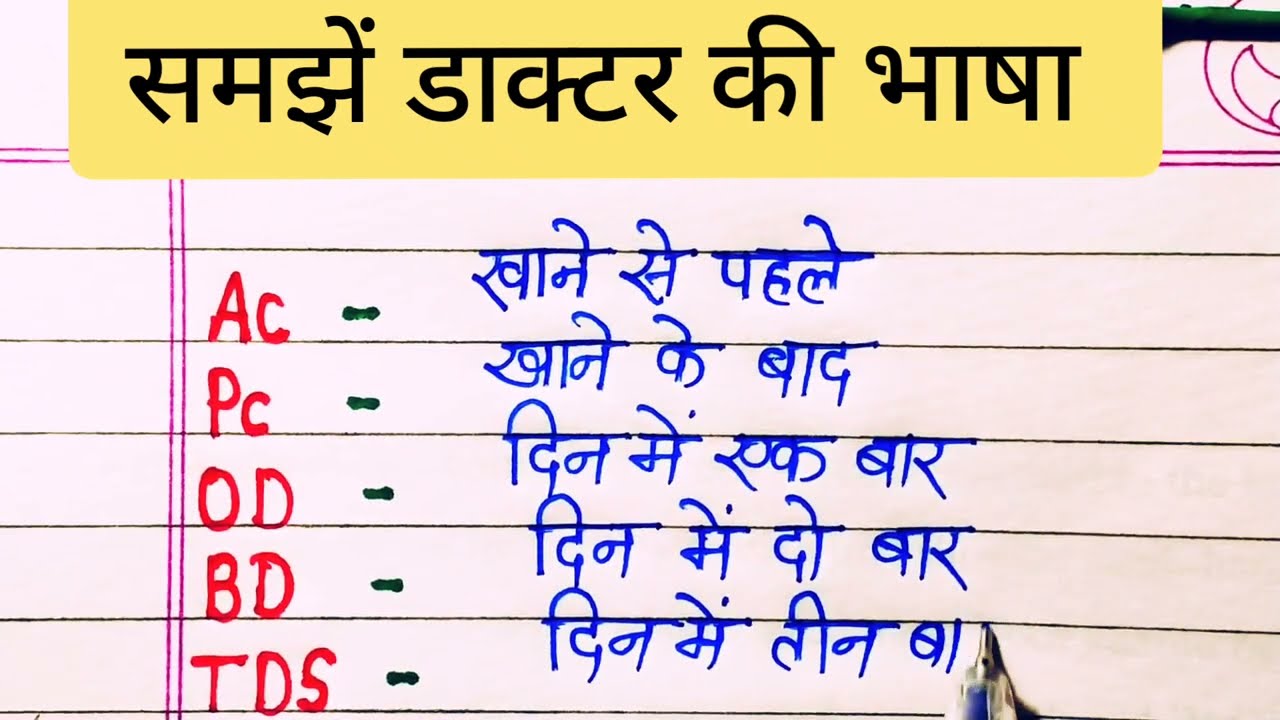 समझें डाक्टर की भाषा
Ac - खाने से पहले
Pc - खाने के बाद
OD - दिन में एक बार
BD - दिन में दो बार
TDS - दिन में तीन बा